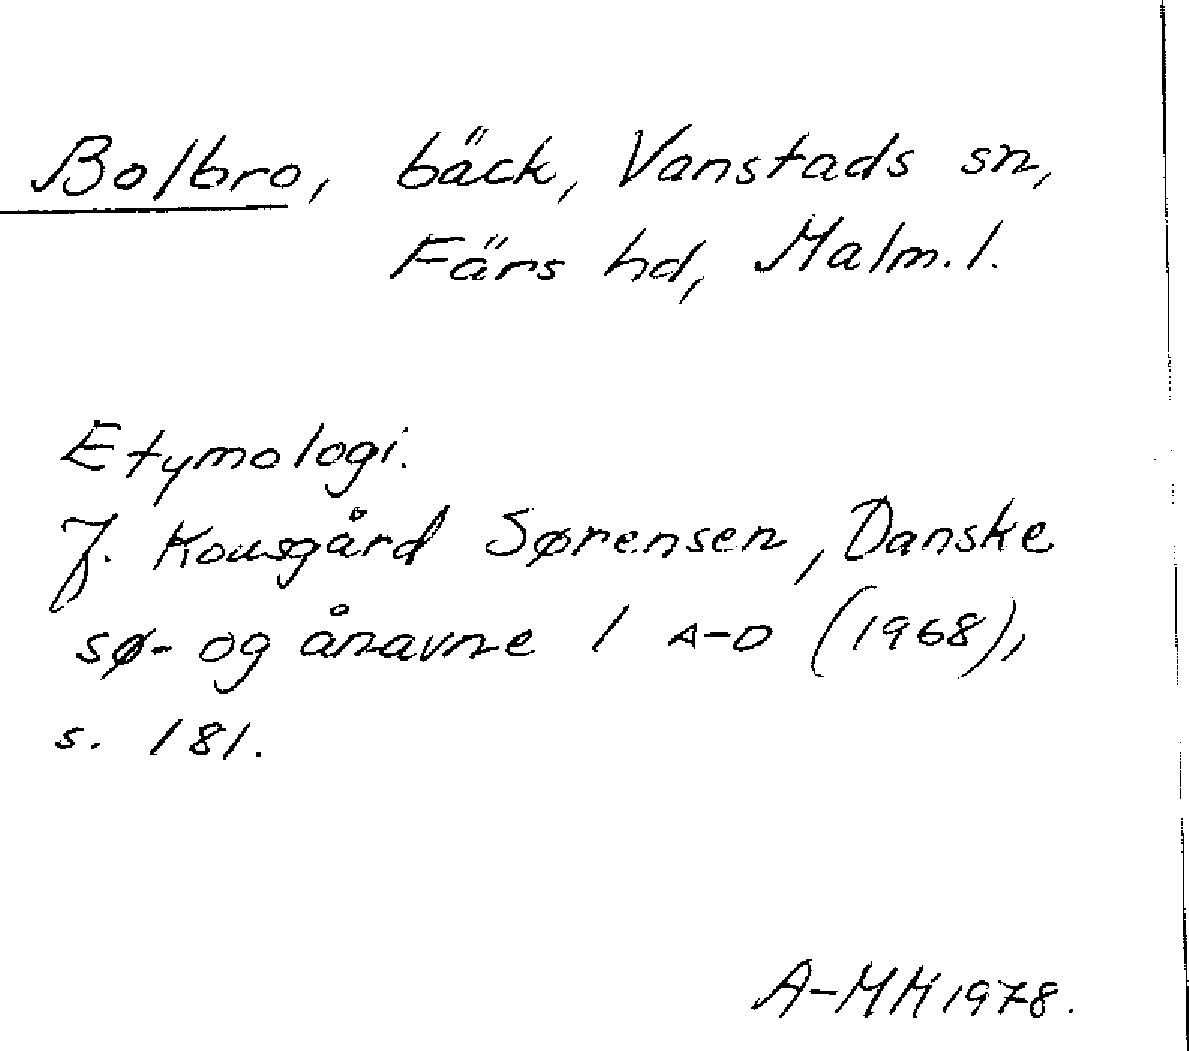 Bolbro, bäck, Vanstads sn,
Färs hd, Malm. l.
Etymologi.
J. Kousgård Sørensen, Danske
sø- og ånavne 1 A-D (1968),
s. 181.
A-MH 1978.